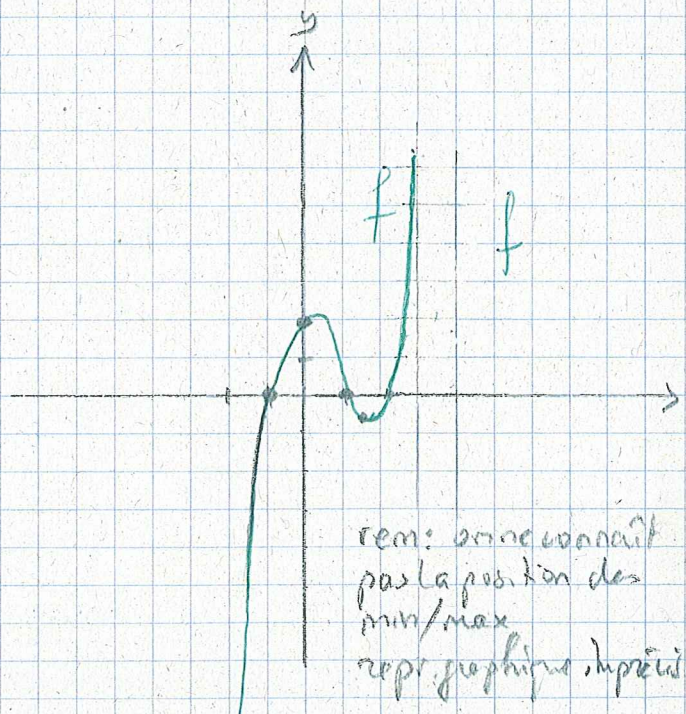 y
f
f
rem: on ne connaît
pas la position des
min/max
repr. graphique imprécis